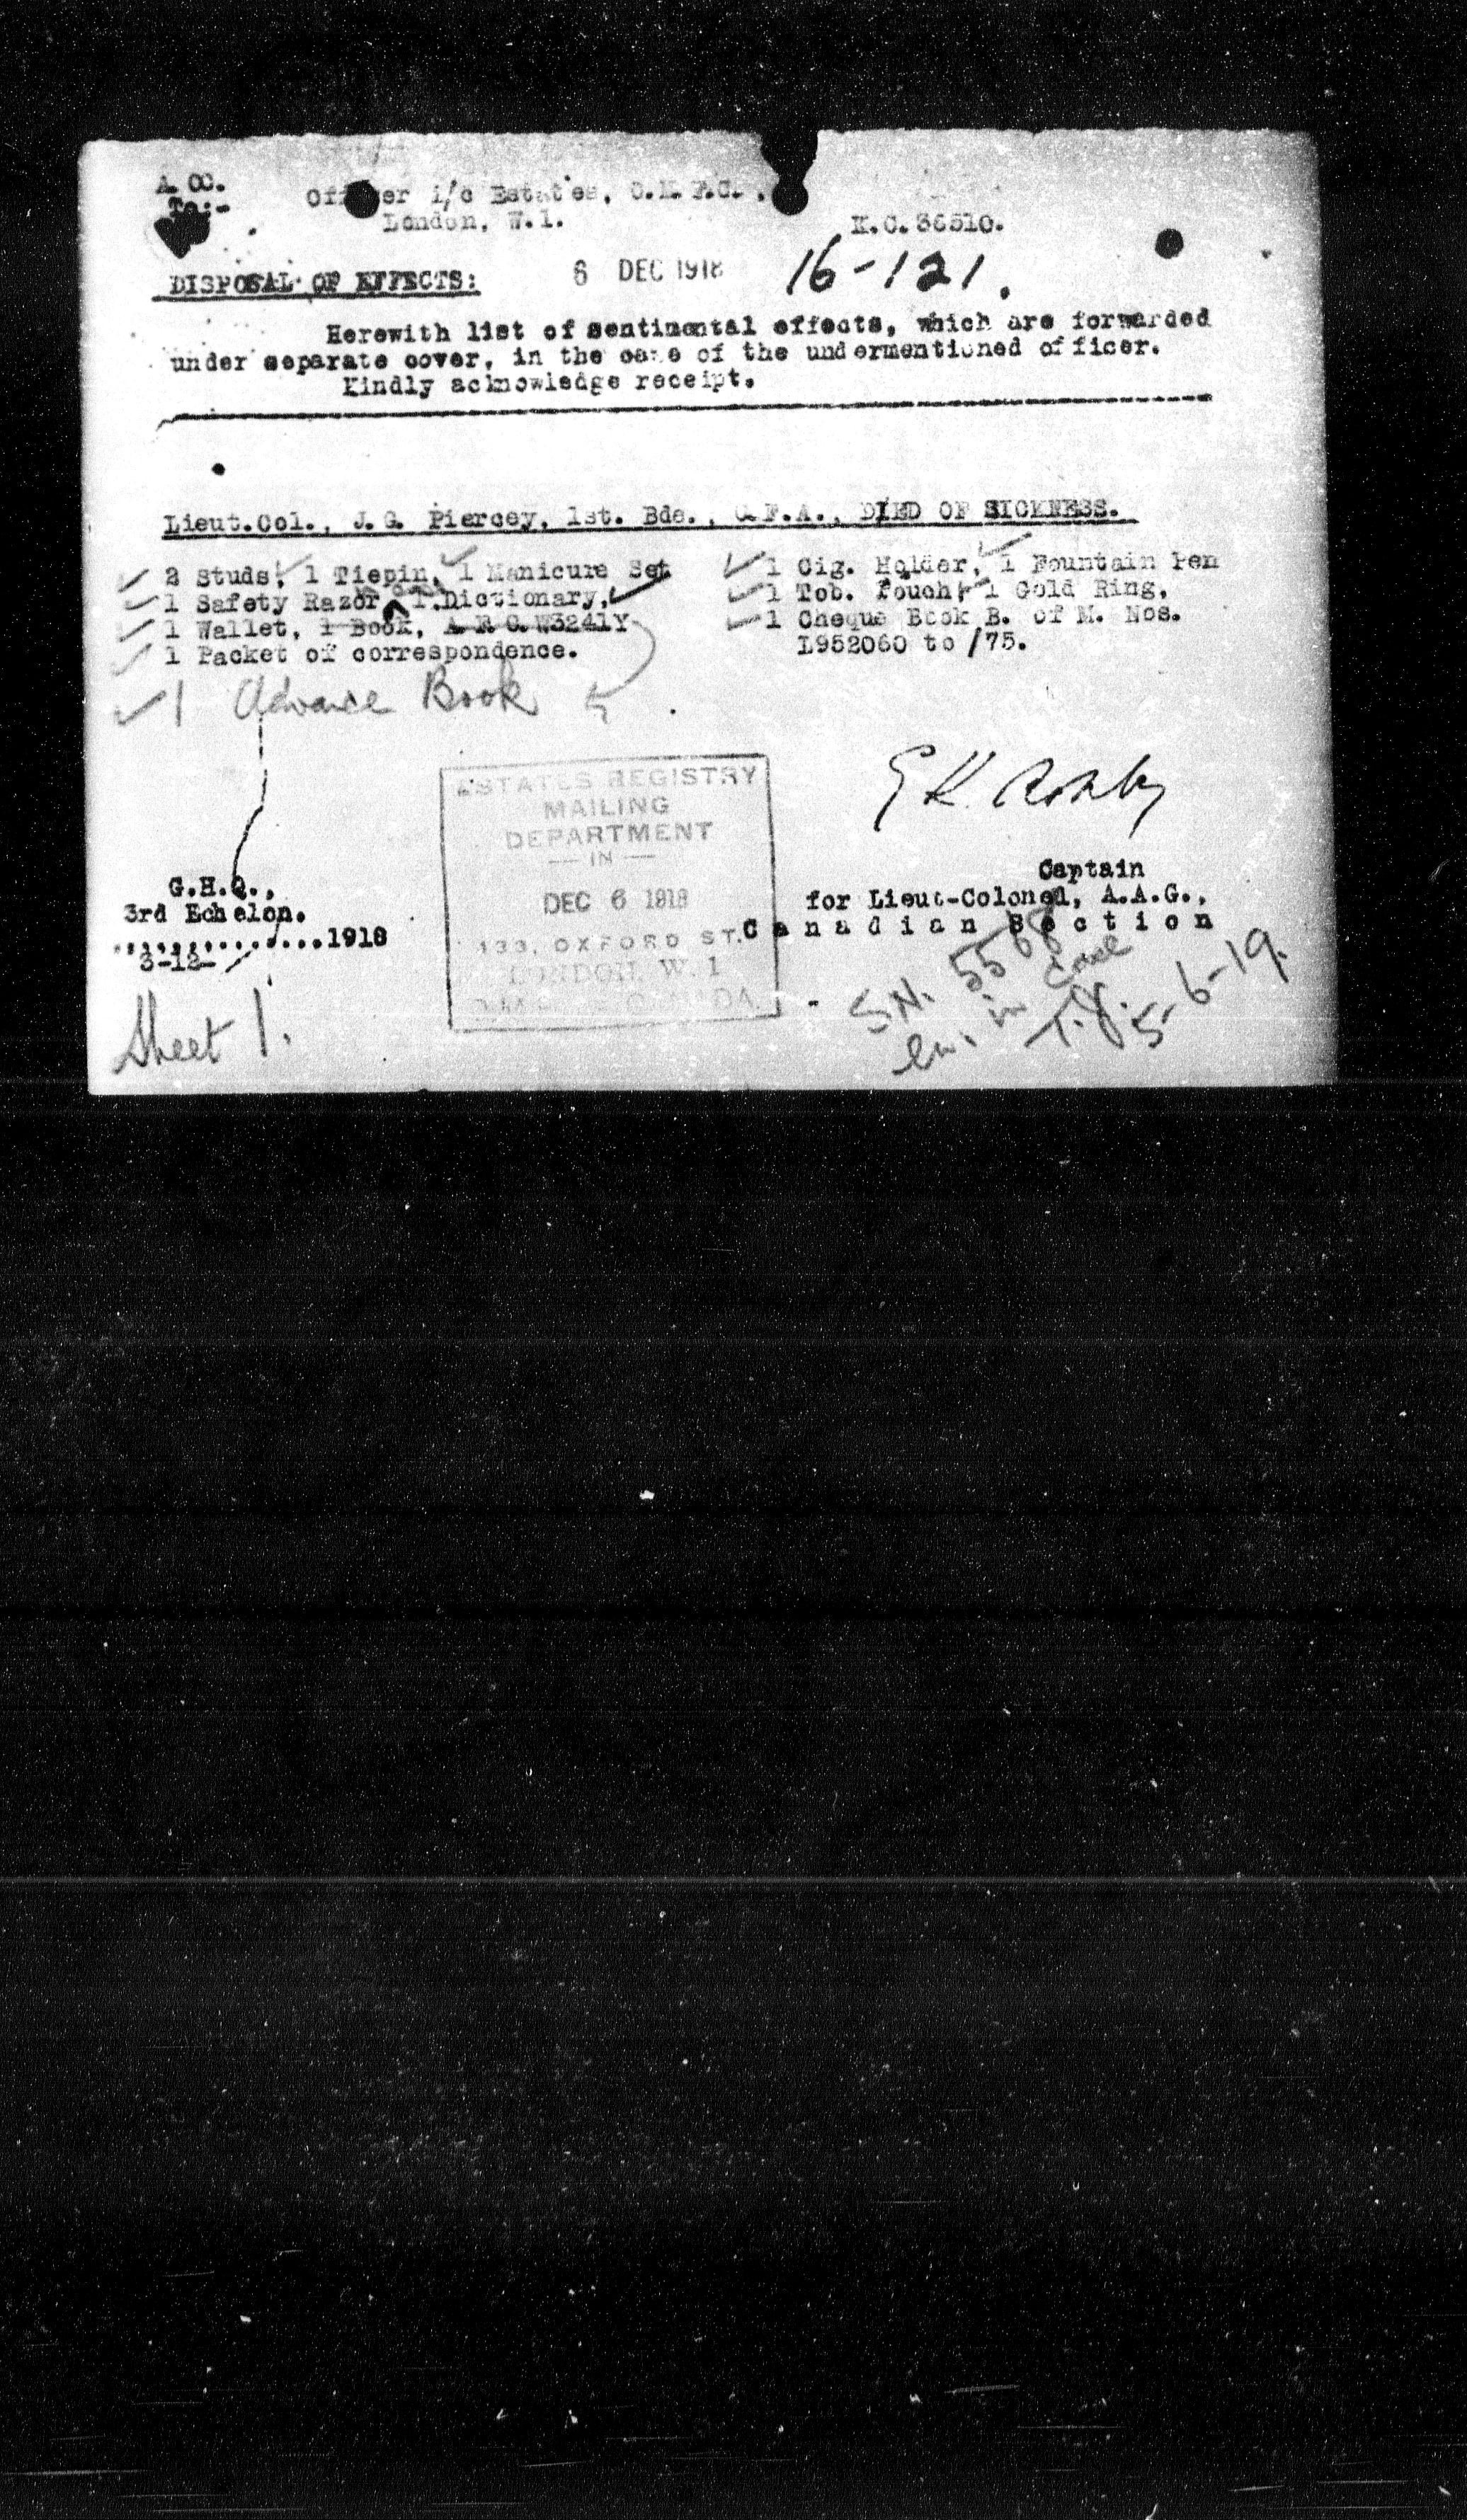 A. CC.
To:- Officer i/c Estates, O.M.F.C.,
London, W.1.
K.C. 36510.
DISPOSAL OF EFFECTS: 6 DEC 1918 16-121.
Herewith list of sentimental effects, which are forwarded
under separate cover, in the case of the undermentioned officer.
Kindly acknowledge receipt.
Lieut.Col., J.G. Piercey, 1st. Bde., C.F.A., DIED OF SICKNESS.
2 Studs, 1 Tiepin, 1 Manicure Set
1 Safety Razor 1.Dictionary,
1 Wallet, 1 Book, A.F.C.W3241Y
1 Packet of correspondence.
1 Advance Book
1 Cig. Holder, 1 Fountain Pen
1 Tob. Pouch, 1 Gold Ring,
1 Cheque Book B. of M. Nos.
L952060 to /75.
ESTATES REGISTRY
MAILING
DEPARTMENT
— IN —
DEC 6 1918
133, OXFORD ST.
LONDON, W. 1
CANADA
Captain
for Lieut-Colonel, A.A.G.,
Canadian Section
G.H.Q.,
3rd Echelon.
..............1918
3-12-
Sheet 1.
S.N.
in case
T.J.
5-6-19.